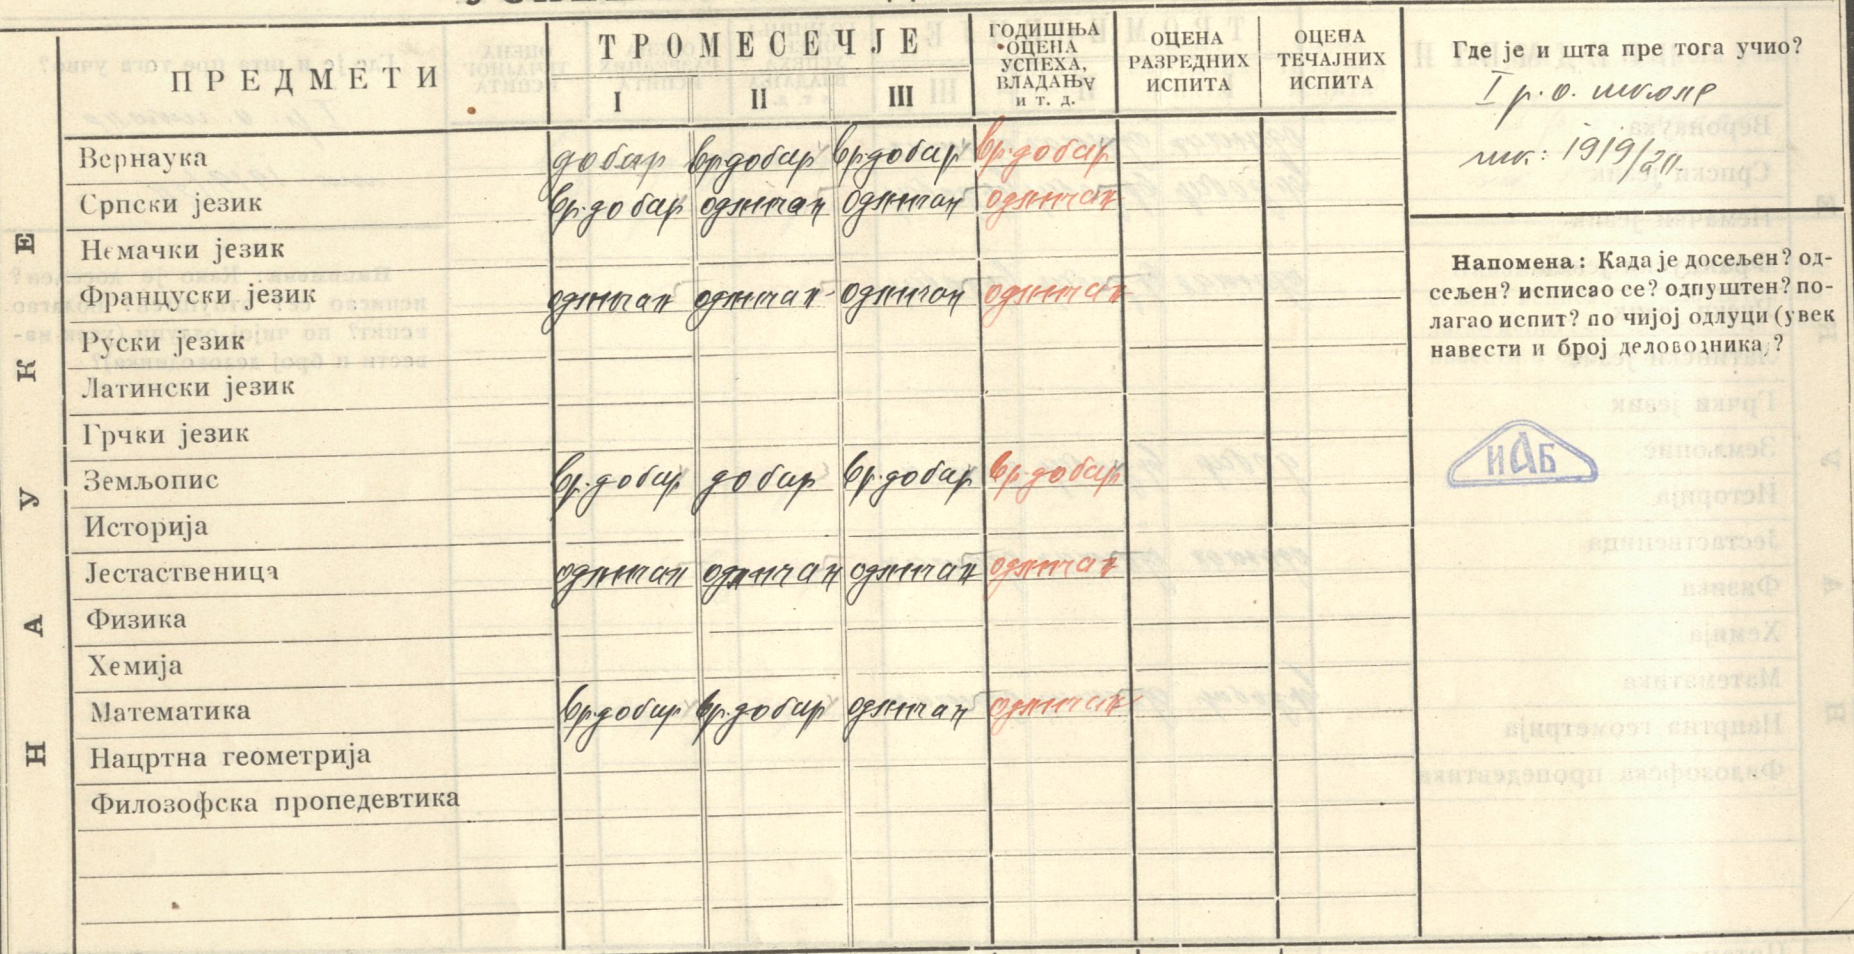 ПРЕДМЕТИ
ТРОМЕСЕЧЈЕ
I II III
ГОДИШЊА ОЦЕНА УСПЕХА, ВЛАДАЊУ И Т. Д.
ОЦЕНА РАЗРЕДНИХ ИСПИТА
ОЦЕНА ТЕЧАЈНИХ ИСПИТА
Где је и шта пре тога учио?
I р. о. школе
шк: 1919/20
НАУКЕ
Вернаука добар вр.добар вр.добар вр.добар
Српски језик вр.добар одличан одличан одличан
Немачки језик
Француски језик одличан одличан одличан одличан
Руски језик
Латински језик
Грчки језик
Земљопис вр.добар добар вр.добар вр.добар
Историја
Јестаственица одличан одличан одличан одличан
Физика
Хемија
Математика вр.добар вр.добар одличан одличан
Нацртна геометрија
Филозофска пропедевтика
Напомена: Када је досељен? од-
сељен? исписао се? отпуштен? по-
лагао испит? по чијој одлуци (увек
навести и број деловодника)?
ИАБ